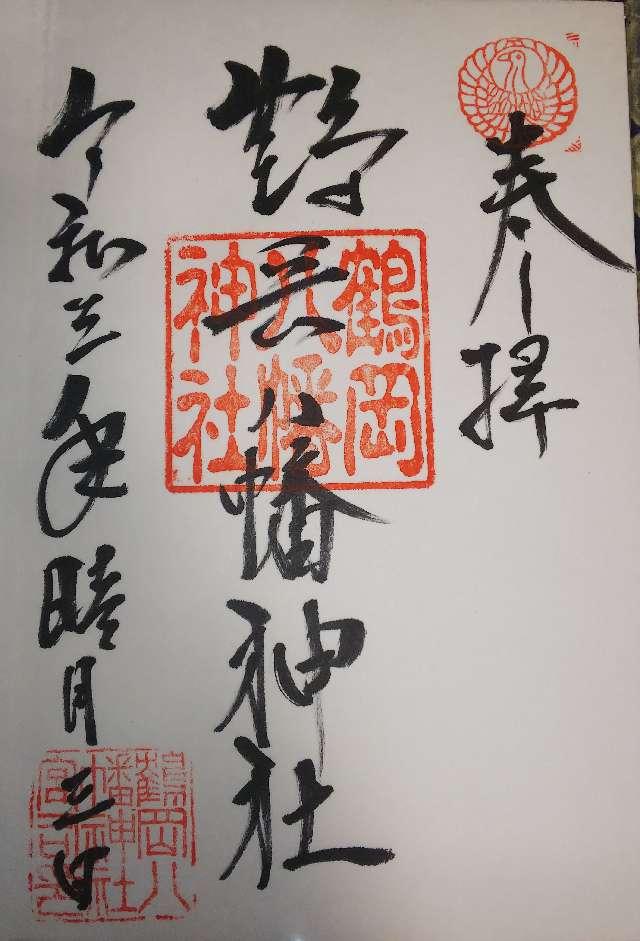 奉拝
鶴岡八幡神社
鶴岡八幡神社
令和三年睦月三日
鶴岡八幡神社宮司之